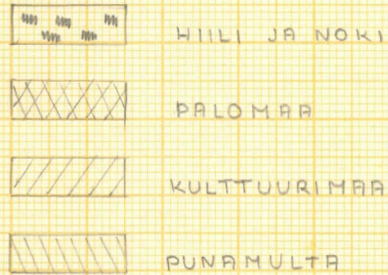 HIILI JA NOKI
PALOMAA
KULTTUURIMAA
PUNAMULTA